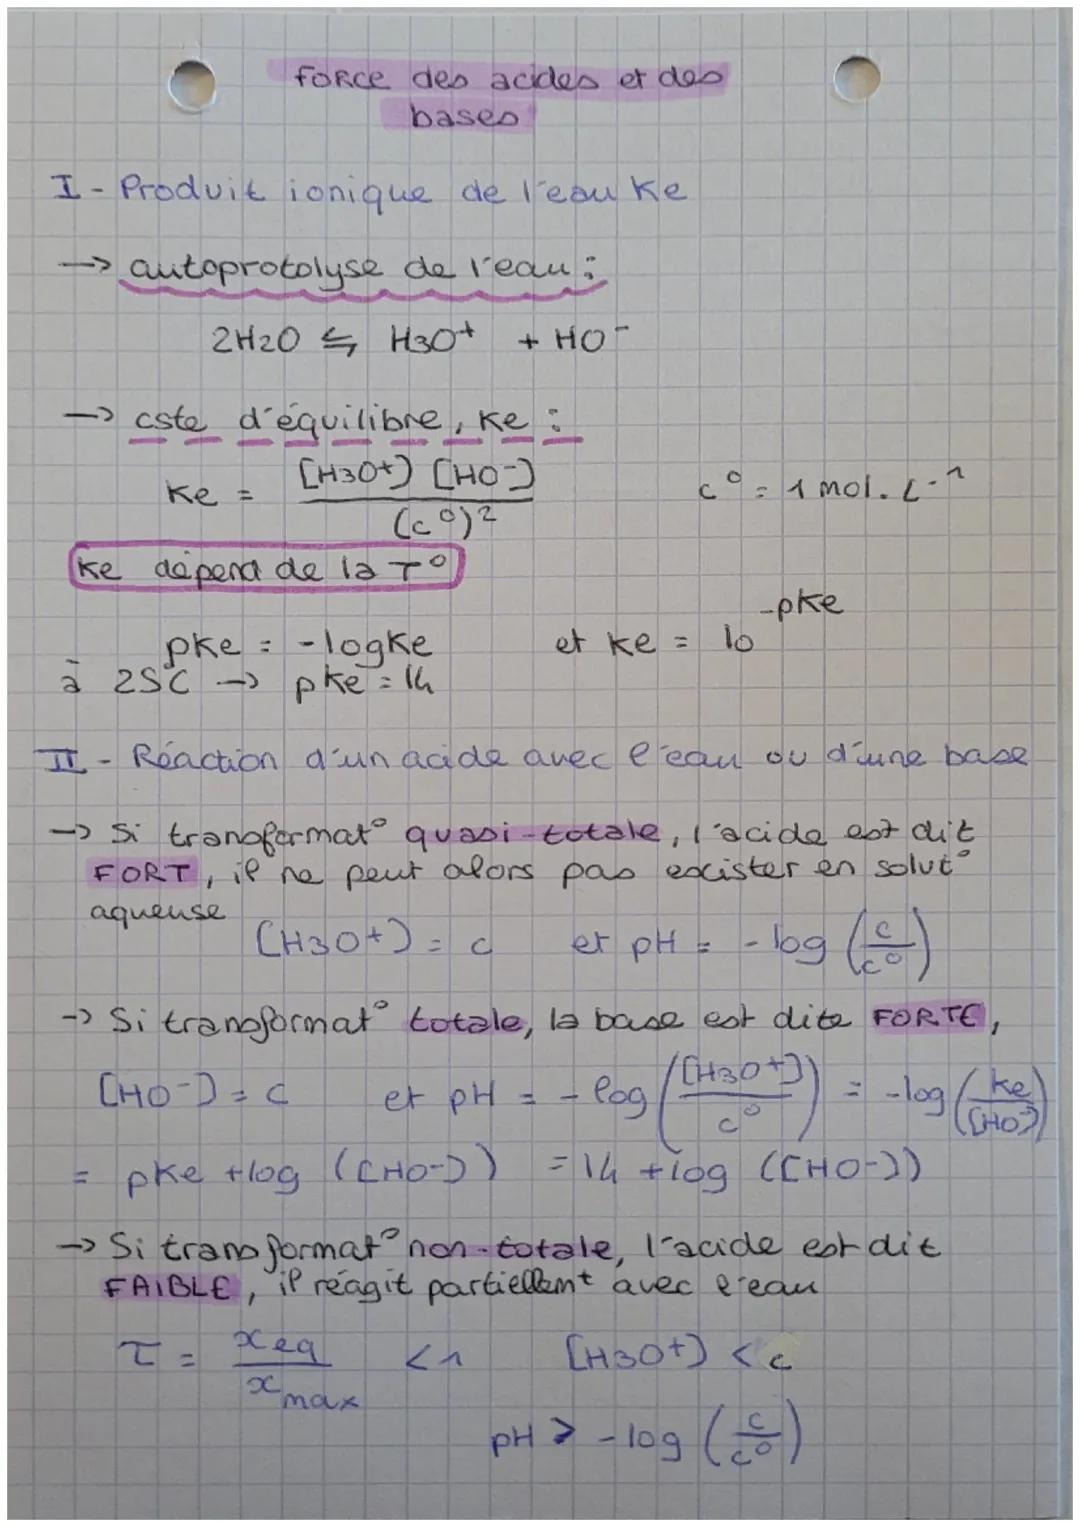 Force des acides et des
bases
I - Produit ionique de l'eau Ke
→ autoprotolyse de l'eau :
2H2O ⇆ H3O+ + HO-
→ cste d'équilibre, Ke :
Ke = [H3O+] [HO-] / (c°)² c° = 1 mol.L-1
Ke dépend de la T°
pKe = -logKe et Ke = 10^-pKe
à 25C → pKe = 14
II - Réaction d'un acide avec l'eau ou d'une base
→ Si transformat° quasi-totale, l'acide est dit
FORT, il ne peut alors pas exister en solut°
aqueuse
[H3O+] = c et pH = -log (c/c°)
→ Si transformat° totale, la base est dite FORTE,
[HO-] = c et pH = -log ([H3O+]/c°) = -log (Ke/[HO-])
= pKe +log ([HO-]) = 14 +log ([HO-])
→ Si transformat° non-totale, l'acide est dit
FAIBLE, il réagit partiellemt avec l'eau
τ = xeq / xmax < 1 [H3O+] < c
pH > -log (c/c°)